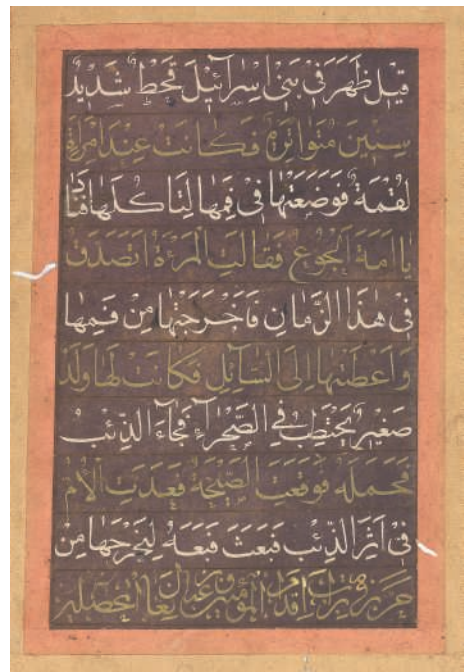 قيل ظهر في بني اسرآئيل قحط شديد
سنين متواترة فكانت عند امرأة
لقمة فوضعتها في فمها لتاكلها فنا
يا امة الجوع فقالت المرءة اتصدق
في هذا الزمان فاخرجتها من فمها
واعطتها الى السآئل فكانت لها ولد
صغير يحتطب في الصحرآء فجآء الذئب
فحمله فوقعت الصيحة فعدت الام
في اثر الذئب فبعث